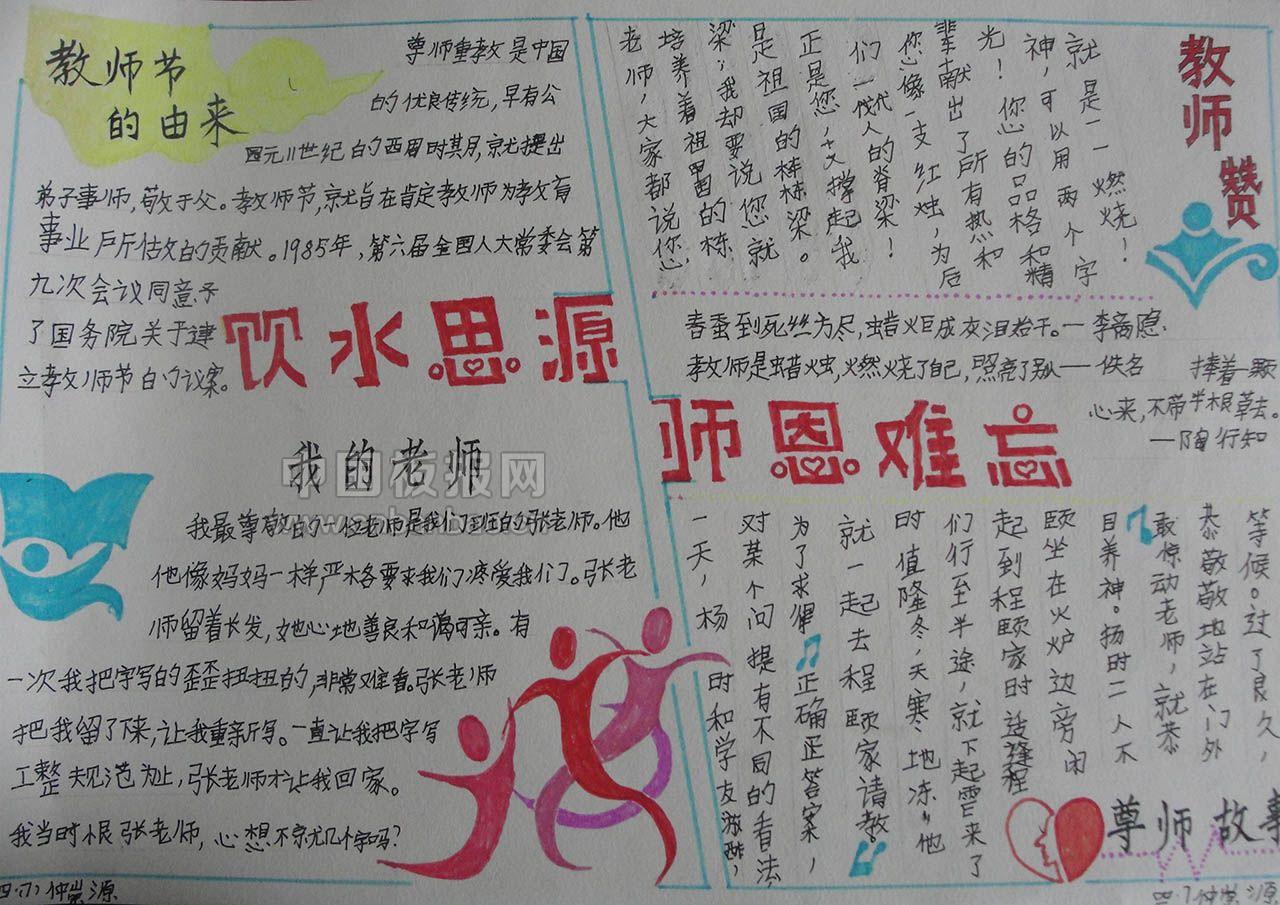 教师节
的由来
尊师重教是中国
的优良传统,早有公
四元11世纪的西周时其月,京尤提出
弟子事师,敬于父。教师节,京尤旨在肯定教师为教育
事业户斤估攵的贡献。1985年,第六届全国人大常委会第
九次会议同意予
了国务院关于建
立教师节的议案。
饮水思源
我的老师
我最尊敬的一位老师是我们班的张老师。他
他像妈妈一样严格要求我们疼爱我们。张老
师留着长发,她心地善良和谒可亲。有
一次我把字写的歪歪扭扭的,非常难看。张老师
把我留了下来,让我重新写。一直让我把字写
工整规范为止,张老师才让我回家。
我当时恨张老师,心想不京尤几个字吗?
四·(7)仲崇源
教师赞
老师,大家都说您
培养着祖国的栋
梁;我却要说您就
是祖国的栋梁。
正是您,支撑起我
们一代代人的脊梁!
您像一支红烛,为后
辈献出了所有热和
光!您的品格和精
神,可以用两个字
就是——燃烧!
春蚕到死丝方尽,蜡火巨成灰泪始干。—李商隐
教师是蜡火虫,火燃烧了自己,照亮了别人——佚名
捧着一颗
心来,不带半根草去。
—陶行知
师恩难忘
一天,杨时和学友游酢,
对某个问提有不同的看法,
为了求得正确正答案,
就一起去程颐家请教。
时值隆冬,天寒地冻,他
们行至半途,就下起雪来了
起到程颐家时适逢程
颐坐在火炉边旁闭
目养神。杨时二人不
敢惊动老师,就恭
恭敬敬地站在门外
等候。过了良久,
尊师故事
四·7仲崇源
中国板报网